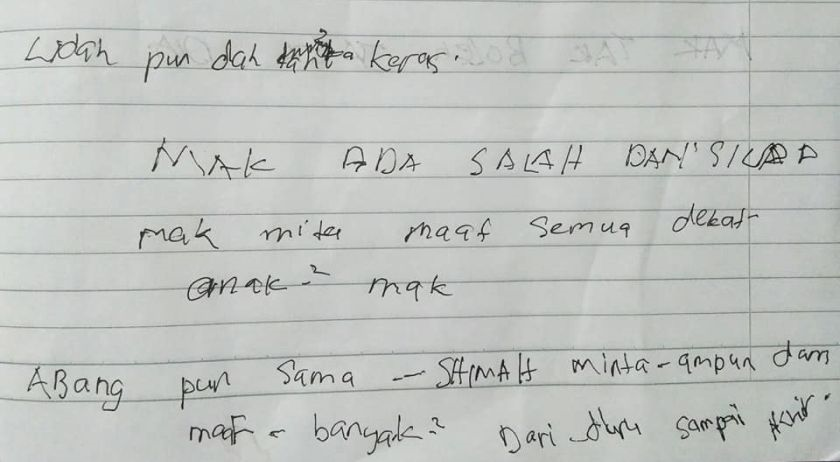 Lidah pun dah keras.
MAK ADA SALAH DAN SILAP
mak mita maaf semua dekat
anak-2 mak
ABang pun sama - SHIMAH minta-ampun dan
maaf - banyak-2 Dari dulu sampai Akhir.